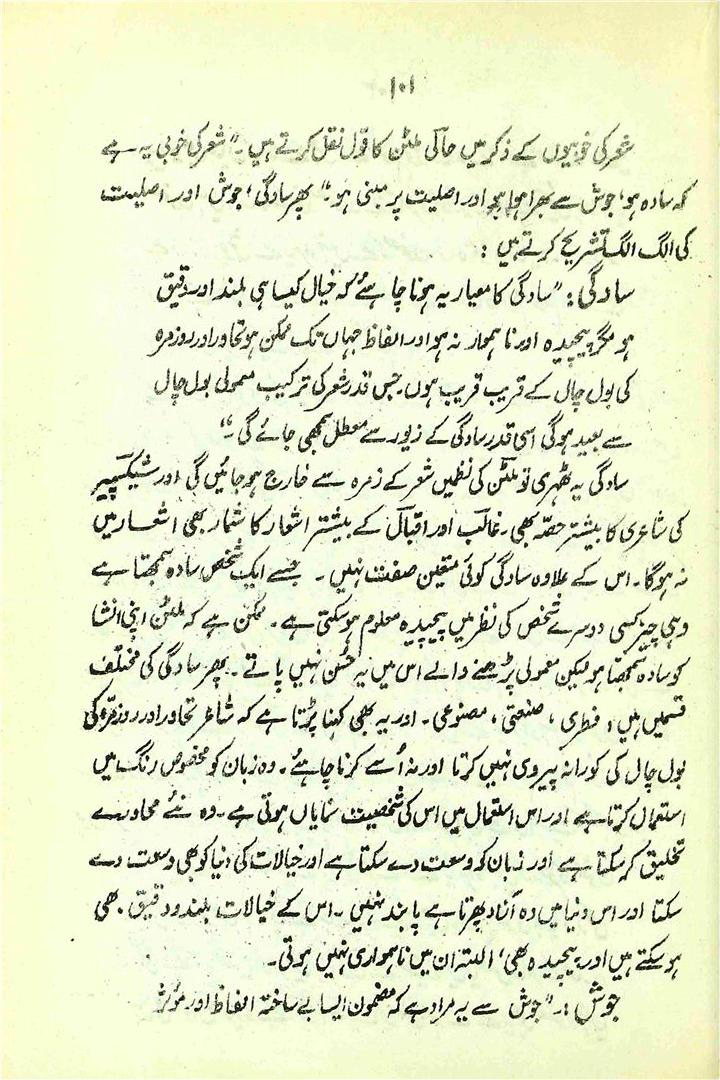 ۱۰۱
شعر کی خوبیوں کے ذکر میں حالی ملٹن کا قول نقل کرتے ہیں۔ "شعر کی خوبی یہ ہے
کہ سادہ ہو، جوش سے بھرا ہوا ہو اور اصلیت پر مبنی ہو۔" پھر سادگی، جوش اور اصلیت
کی الگ الگ تشریح کرتے ہیں :
سادگی : "سادگی کا معیار یہ ہونا چاہئے کہ خیال کیسا ہی بلند اور دقیق
ہو مگر پیچیدہ اور نا ہموار نہ ہو اور الفاظ جہاں تک ممکن ہو تحاور اور روزمرہ
کی بول چال کے قریب قریب ہوں۔ جس قدر شعر کی ترکیب معمولی بول چال
سے بعید ہوگی اسی قدر سادگی کے زیور سے معطل سمجھی جائے گی۔"
سادگی یہ ٹھہری تو ملٹن کی نظمیں شعر کے زمرہ سے خارج ہو جائیں گی اور شیکسپیر
کی شاعری کا بیشتر حصہ بھی۔ غالب اور اقبال کے بیشتر اشعار کا شمار بھی اشعار میں
نہ ہوگا۔ اس کے علاوہ سادگی کوئی متعین صفت نہیں۔ جسے ایک شخص سادہ سمجھتا ہے
وہی چیز کسی دوسرے شخص کی نظر میں پیچیدہ معلوم ہو سکتی ہے۔ ممکن ہے کہ ملٹن اپنی انشا
کو سادہ سمجھتا ہو لیکن معمولی پڑھنے والے اس میں یہ حسن نہیں پاتے۔ پھر سادگی کی مختلف
قسمیں ہیں، فطری، صنعتی، مصنوعی۔ اور یہ بھی کہنا پڑتا ہے کہ شاعر تحاور اور روزمرہ کی
بول چال کی کورانہ پیروی نہیں کرتا اور نہ اُسے کرنا چاہئے۔ وہ زبان کو مخصوص رنگ میں
استعمال کرتا ہے اور اس استعمال میں اس کی شخصیت نمایاں ہوتی ہے۔ وہ نئے محاورے
تخلیق کر سکتا ہے اور زبان کو وسعت دے سکتا ہے اور خیالات کی دنیا کو بھی وسعت دے
سکتا اور اس دنیا میں وہ آزاد پھرتا ہے پابند نہیں۔ اس کے خیالات بلند و دقیق بھی
ہو سکتے ہیں اور پیچیدہ بھی، البتہ ان میں ناہمواری نہیں ہوتی۔
جوش :۔ "جوش سے یہ مراد ہے کہ مضمون ایسا بے ساختہ الفاظ اور موثر